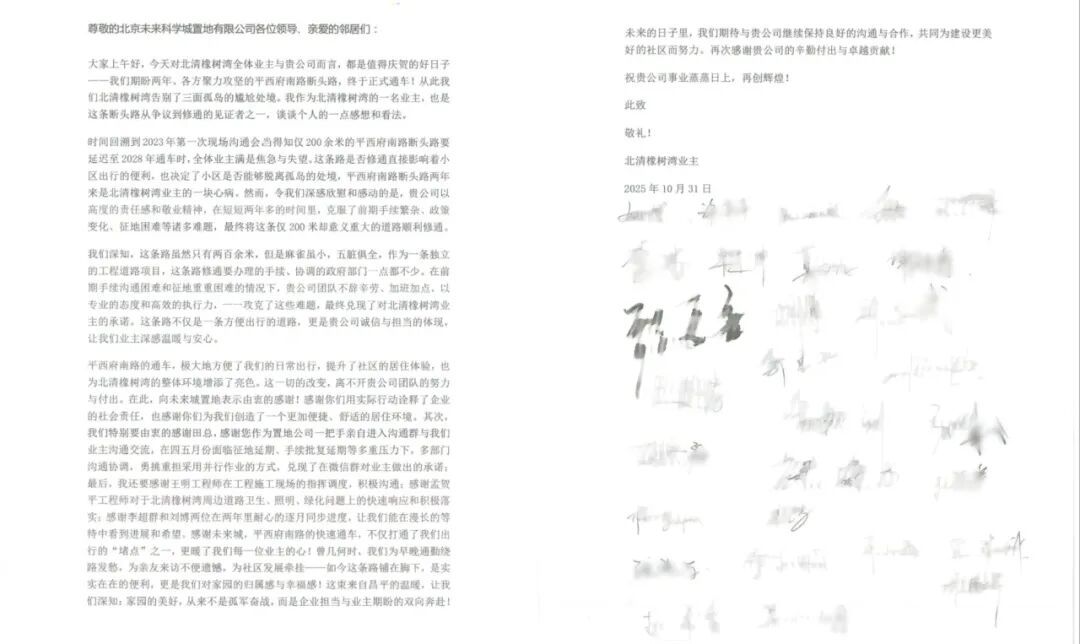 尊敬的北京未来科学城置地有限公司各位领导、亲爱的邻居们：
大家上午好，今天对北清橡树湾全体业主与贵公司而言，都是值得庆贺的好日子
——我们期盼两年、各方聚力攻坚的平西府南路断头路，终于正式通车！从此我
们北清橡树湾告别了三面孤岛的尴尬处境。我作为北清橡树湾的一名业主，也是
这条断头路从争议到修通的见证者之一，谈谈个人的一点感想和看法。
时间回溯到2023年第一次现场沟通会,当得知仅200余米的平西府南路断头路要
延迟至2028年通车时,全体业主满是焦急与失望。这条路是否修通直接影响着小
区出行的便利，也决定了小区是否能够脱离孤岛的处境，平西府南路断头路两年
来是北清橡树湾业主的一块心病。然而，令我们深感欣慰和感动的是，贵公司以
高度的责任感和敬业精神，在短短两年多的时间里，克服了前期手续繁杂、政策
变化、征地困难等诸多难题，最终将这条仅200米却意义重大的道路顺利修通。
我们深知，这条路虽然只有两百余米，但是麻雀虽小，五脏俱全，作为一条独立
的工程道路项目，这条路修通要办理的手续、协调的政府部门一点都不少。在前
期手续沟通困难和征地重重困难的情况下，贵公司团队不辞辛劳、加班加点，以
专业的态度和高效的执行力，一一攻克了这些难题，最终兑现了对北清橡树湾业
主的承诺。这条路不仅是一条方便出行的道路，更是贵公司诚信与担当的体现，
让我们业主深感温暖与安心。
平西府南路的通车，极大地方便了我们的日常出行，提升了社区的居住体验，也
为北清橡树湾的整体环境增添了亮色。这一切的改变，离不开贵公司团队的努力
与付出。在此，向未来城置地表示由衷的感谢！感谢你们用实际行动诠释了企业
的社会责任，也感谢你们为我们创造了一个更加便捷、舒适的居住环境。其次，
我们特别要由衷的感谢田总，感谢您作为置地公司一把手亲自进入沟通群与我们
业主沟通交流，在四五月份面临征地延期、手续批复延期等多重压力下，多部门
沟通协调，勇挑重担采用并行作业的方式，兑现了在微信群对业主做出的承诺；
最后，我还要感谢王明工程师在工程施工现场的指挥调度，积极沟通；感谢孟贺
平工程师对于北清橡树湾周边道路卫生、照明、绿化问题上的快速响应和积极落
实；感谢李超群和刘博两位在两年里耐心的逐月同步进度，让我们能在漫长的等
待中看到进展和希望。感谢未来城，平西府南路的快速通车，不仅打通了我们出
行的“堵点”之一，更暖了我们每一位业主的心！曾几何时，我们为早晚通勤绕
路发愁，为亲友来访不便遗憾，为社区发展牵挂——如今这条路铺在脚下，是实
实在在的便利，更是我们对家园的归属感与幸福感！这束来自昌平的温暖，让我
们深知：家园的美好，从来不是孤军奋战，而是企业担当与业主期盼的双向奔赴！
未来的日子里，我们期待与贵公司继续保持良好的沟通与合作，共同为建设更美
好的社区而努力。再次感谢贵公司的辛勤付出与卓越贡献！
祝贵公司事业蒸蒸日上，再创辉煌！
此致
敬礼！
北清橡树湾业主
2025年10月31日